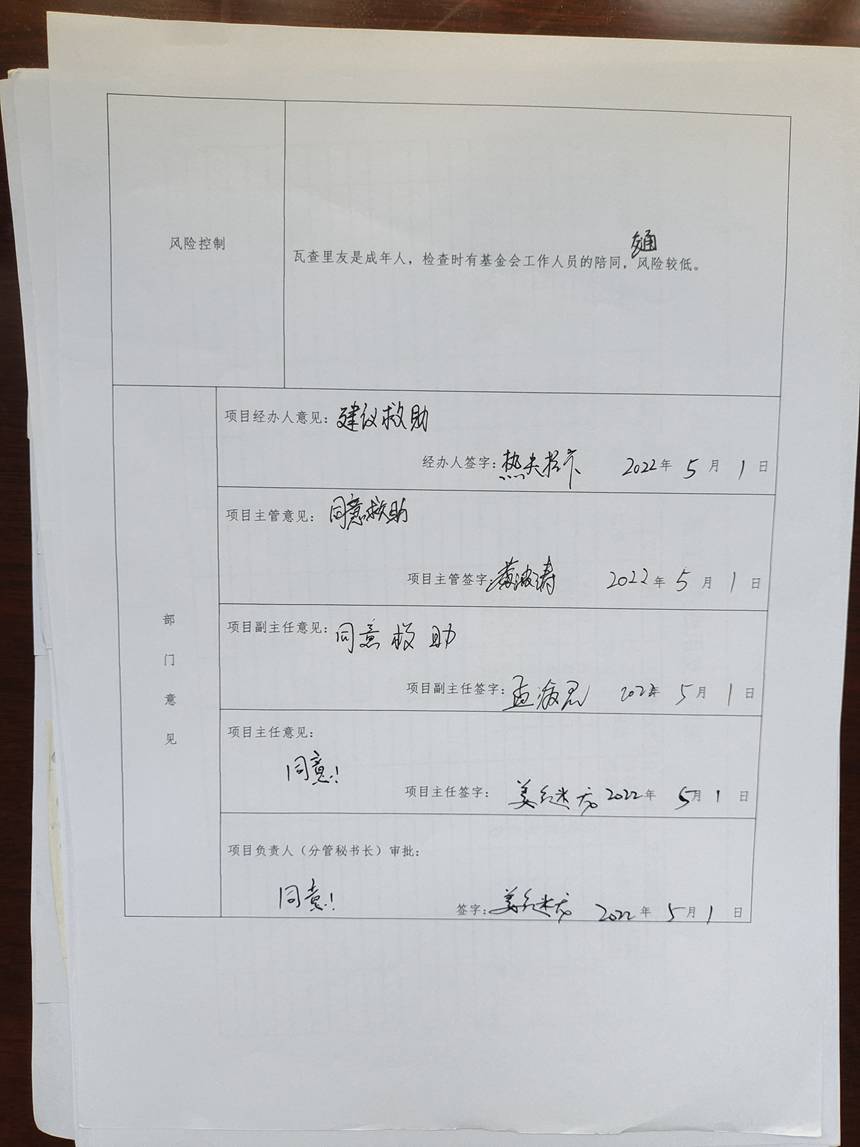 交通
风险控制
瓦查里友是成年人，检查时有基金会工作人员的陪同，风险较低。
部门意见
项目经办人意见：建议救助
经办人签字： 2022年5月1日
项目主管意见：同意救助
项目主管签字： 2022年5月1日
项目副主任意见：同意救助
项目副主任签字： 2022年5月1日
项目主任意见：
同意！
项目主任签字：姜继龙 2022年5月1日
项目负责人（分管秘书长）审批：
同意！
签字：姜继龙 2022年5月1日